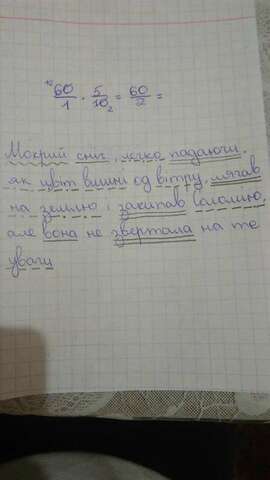 10 60/1 · 5/10 2 = 60/2 =
Мокрий сніг, легко падаючи,
як цвіт вишні од вітру, лягав
на землю і закитав Соломію,
але вона не звертала на те
уваги